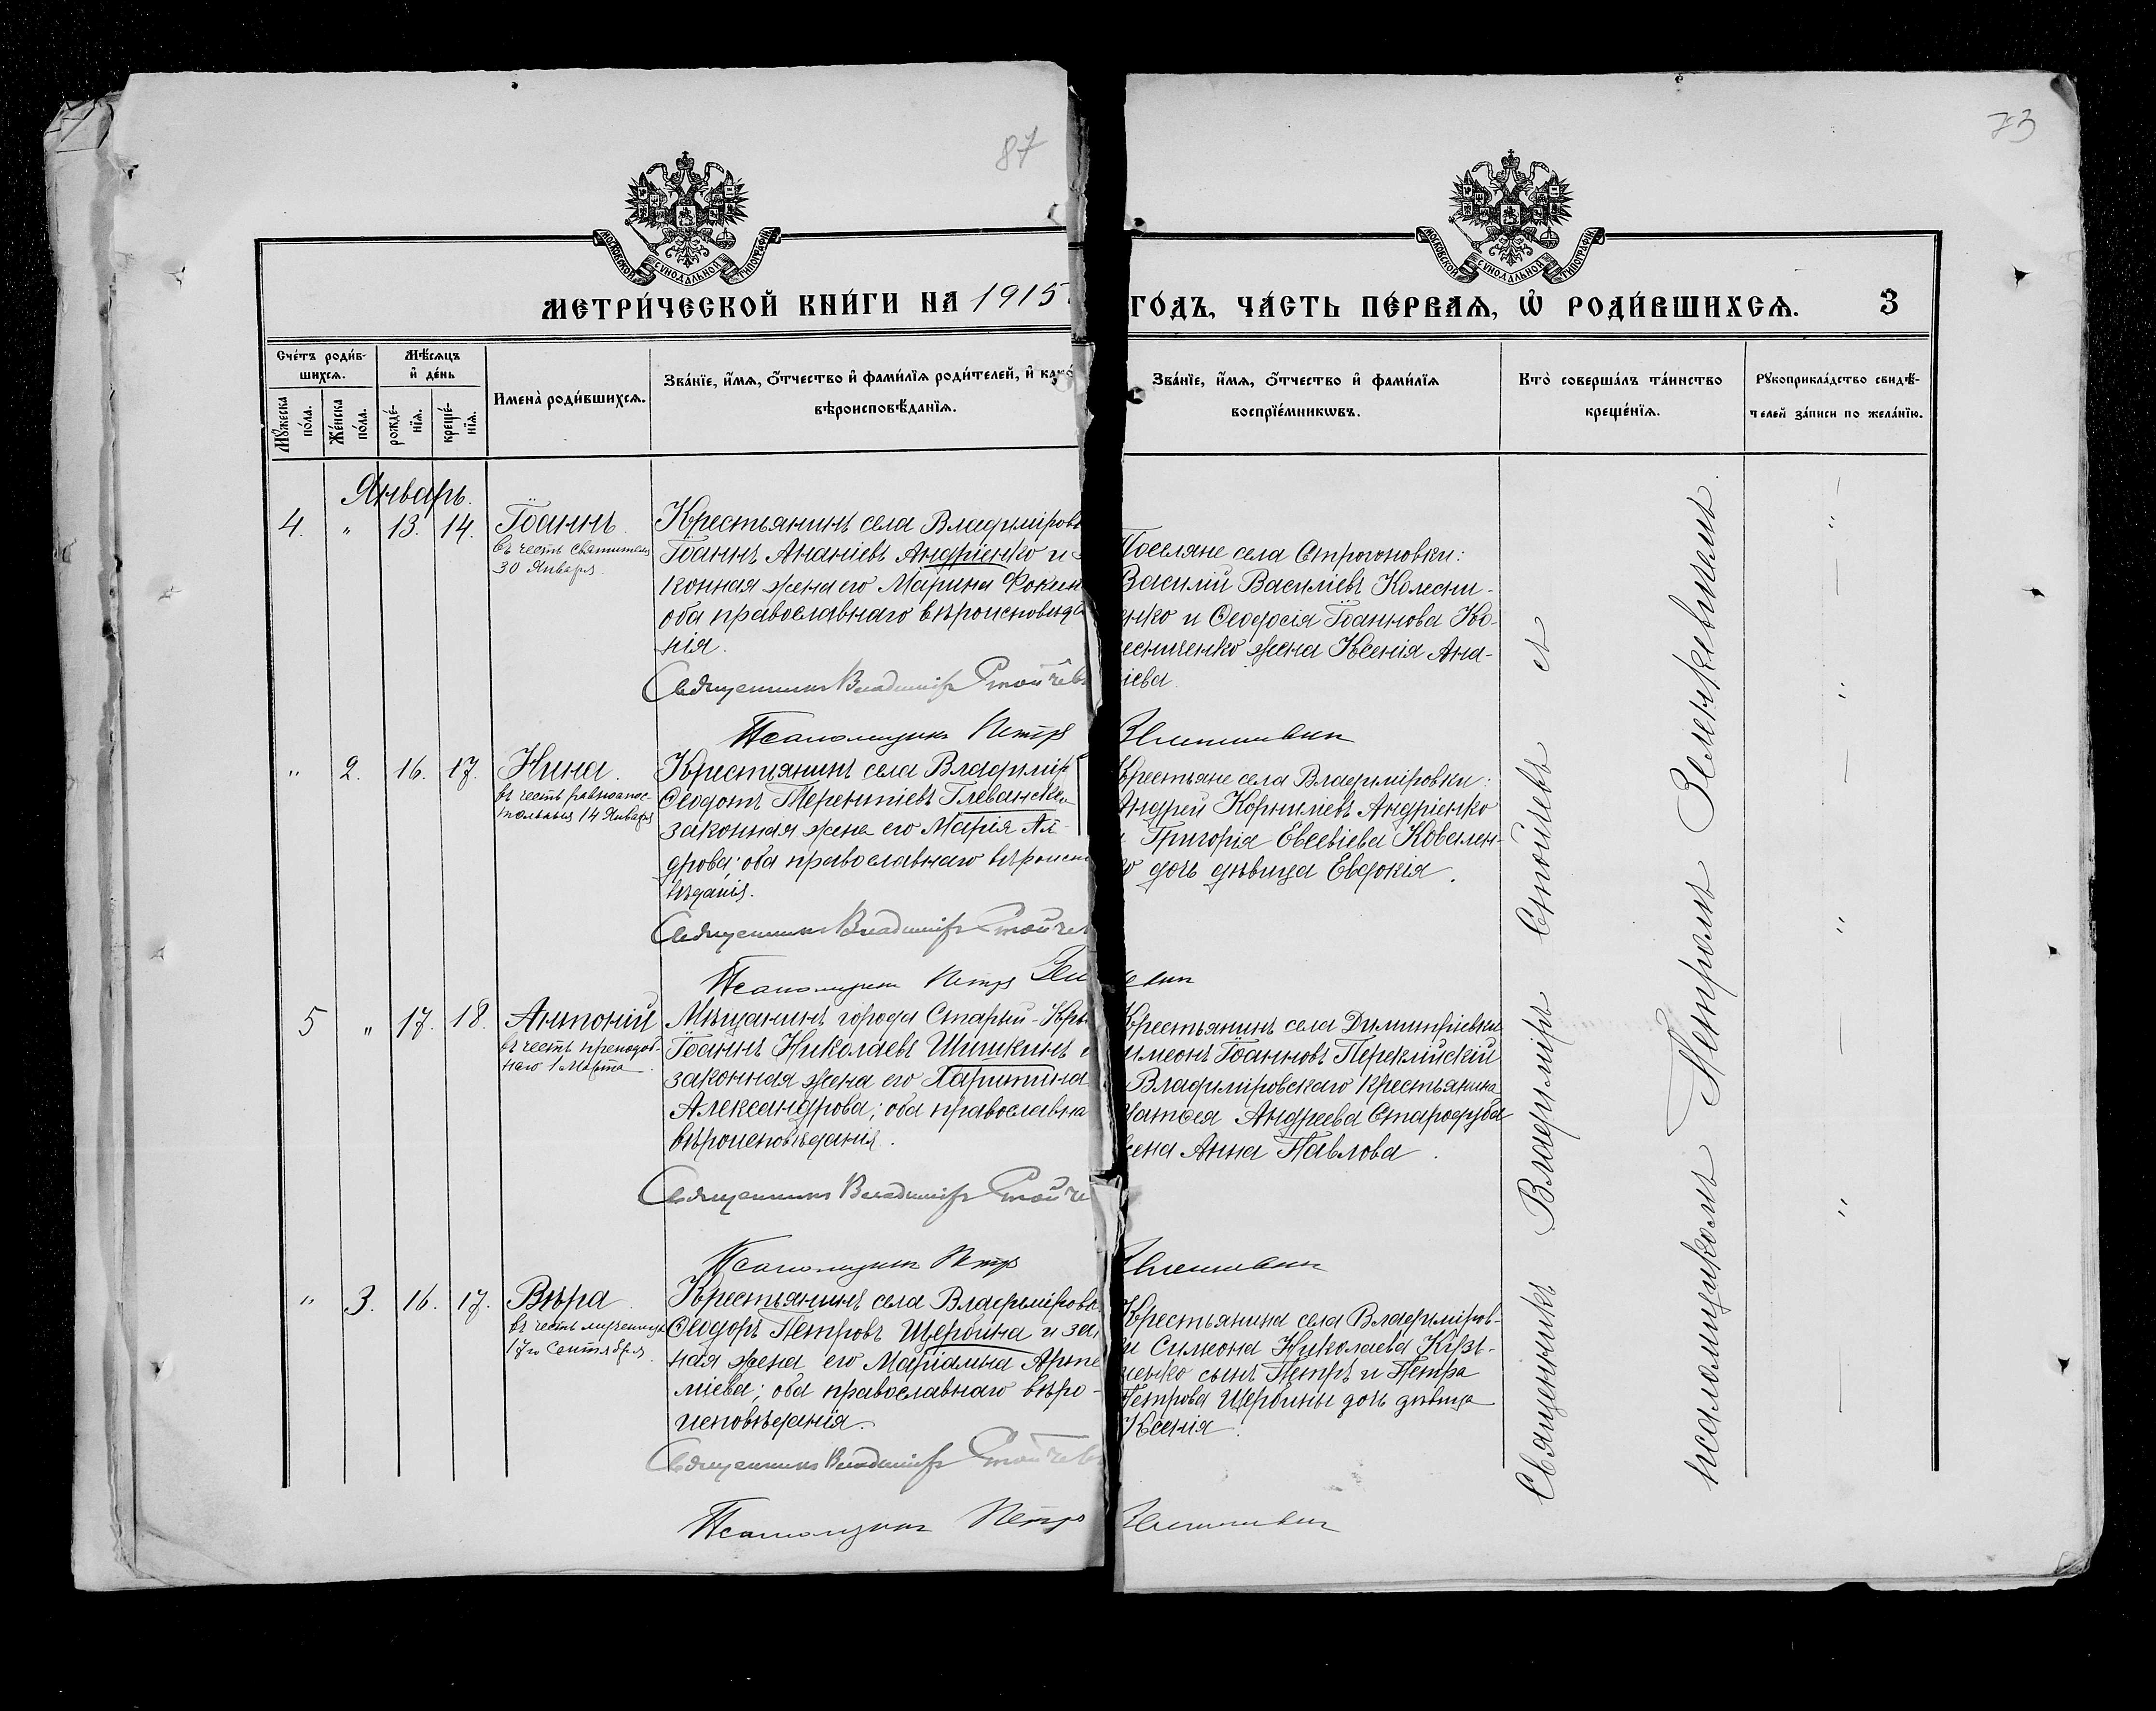 87
73
МОСКОВСКОЙ СУНОДАЛЬНОЙ ТИПОГРАФІИ
МОСКОВСКОЙ СУНОДАЛЬНОЙ ТИПОГРАФІИ
МЕТРИ́ЧЕСКОЙ КНИ́ГИ НА 1915
ГО́ДЪ, ЧА́СТЬ ПЕ́РВАѦ, Ѡ҆ РОДИ́ВШИХСѦ. 3
Сче́тъ роди́в-
шихсѧ.
Мꙋ́жеска по́ла.
Же́нска по́ла.
Мѣ́сѧцъ
и҆ де́нь
рожде́-
нїѧ.
креще́-
нїѧ.
Имена̀ роди́вшихсѧ.
Зва́нїе, и҆́мѧ, ѻ҆́тчество и҆ фами́лїѧ роди́телей, и҆ како́
вѣроисповѣ́данїѧ.
Зва́нїе, и҆́мѧ, ѻ҆́тчество и҆ фами́лїѧ
воспрїе́мникѡвъ.
Кто̀ соверша́лъ та́инство
креще́нїѧ.
Рꙋкоприкла́дство свидѣ́-
телей за́писи по жела́нїю.
Январь.
4. " 13. 14. Іоаннъ
въ честь святителя
30 Января.
Крестьянинъ села Владиміровк
Іоаннъ Ананіевъ Андріенко и з
конная жена его Марина Фокин
оба православнаго вѣроисповѣда
нія.
Священникъ Владиміръ Стойчев
Псаломщикъ Петръ
Поселяне села Строгоновки:
Василій Василіевъ Колесни-
енко и Ѳеодосія Іоаннова Ко-
есниченко жена Ксенія Ана-
іева.
" 2. 16. 17. Нина.
въ честь равноапос-
тольныя 14 Января
Крестьянинъ села Владимір
Ѳеодотъ Терентіевъ Глеванск
законная жена его Марія Ал
дрова; оба православнаго вѣроисп
вѣданія.
Священникъ Владиміръ Стойчев
Псаломщикъ Петръ Зел
Крестьяне села Владиміровки:
Андрей Корниліевъ Андріенко
и Григорія Евсевіева Ковален-
о дочь дѣвица Евдокія.
5 " 17. 18. Антоній
въ честь преподоб-
наго 1 Марта.
Мѣщанинъ города Старый-Кры
Іоаннъ Николаевъ Шишкинъ и
законная жена его Харитина
Александрова; оба православна
вѣроисповѣданія.
Священникъ Владиміръ Стойче
Псаломщикъ Петръ
Крестьянинъ села Димитріевки
имеонъ Іоанновъ
Владиміровскаго крестьянина
Матѳея Андреева Стародуба
жена Анна Павлова.
" 3. 16. 17. Вѣра.
въ честь мученицы
17го Сентября.
Крестьянинъ села Владиміровк
Ѳеодоръ Петровъ Щербина и зак
ная жена его Маріамна Арте
міева; оба православнаго вѣро-
исповѣданія.
Священникъ Владиміръ Стойчев
Псаломщикъ Петръ
Крестьянина села Владиміров-
и Симеона Николаева Кузь-
менко сынъ Петръ и Петра
Петрова Щербины дочь дѣвица
Ксенія.
Священникъ Владиміръ Стойчевъ съ
псаломщикомъ Петромъ Зеленкевичемъ.